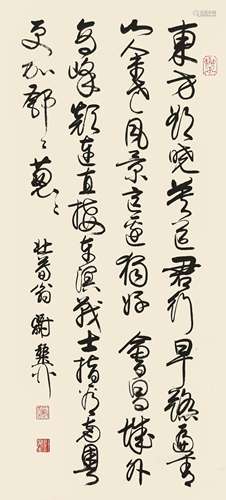 東方欲曉莫道君行早踏遍青
山人未老風景這邊獨好 會昌城外
高峰顛連直接東溟戰士指看南粵
更加鬱〻蔥〻 壯暮翁 謝稚柳